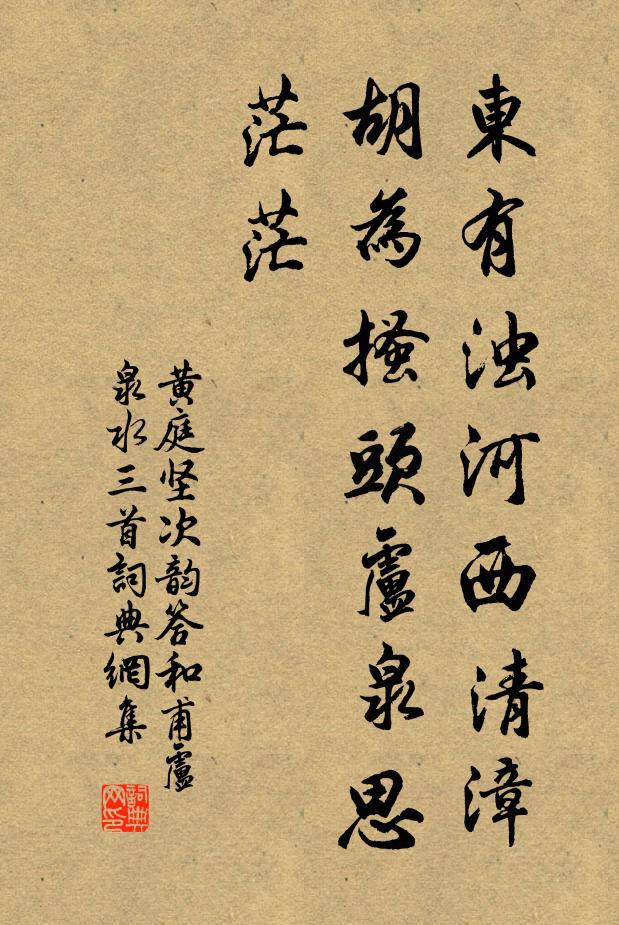 東有浊河西清漳
胡為搔頭盧泉思
茫茫
黄庭坚次韵答和甫盧
泉水三首詞典網集
詞典
网印